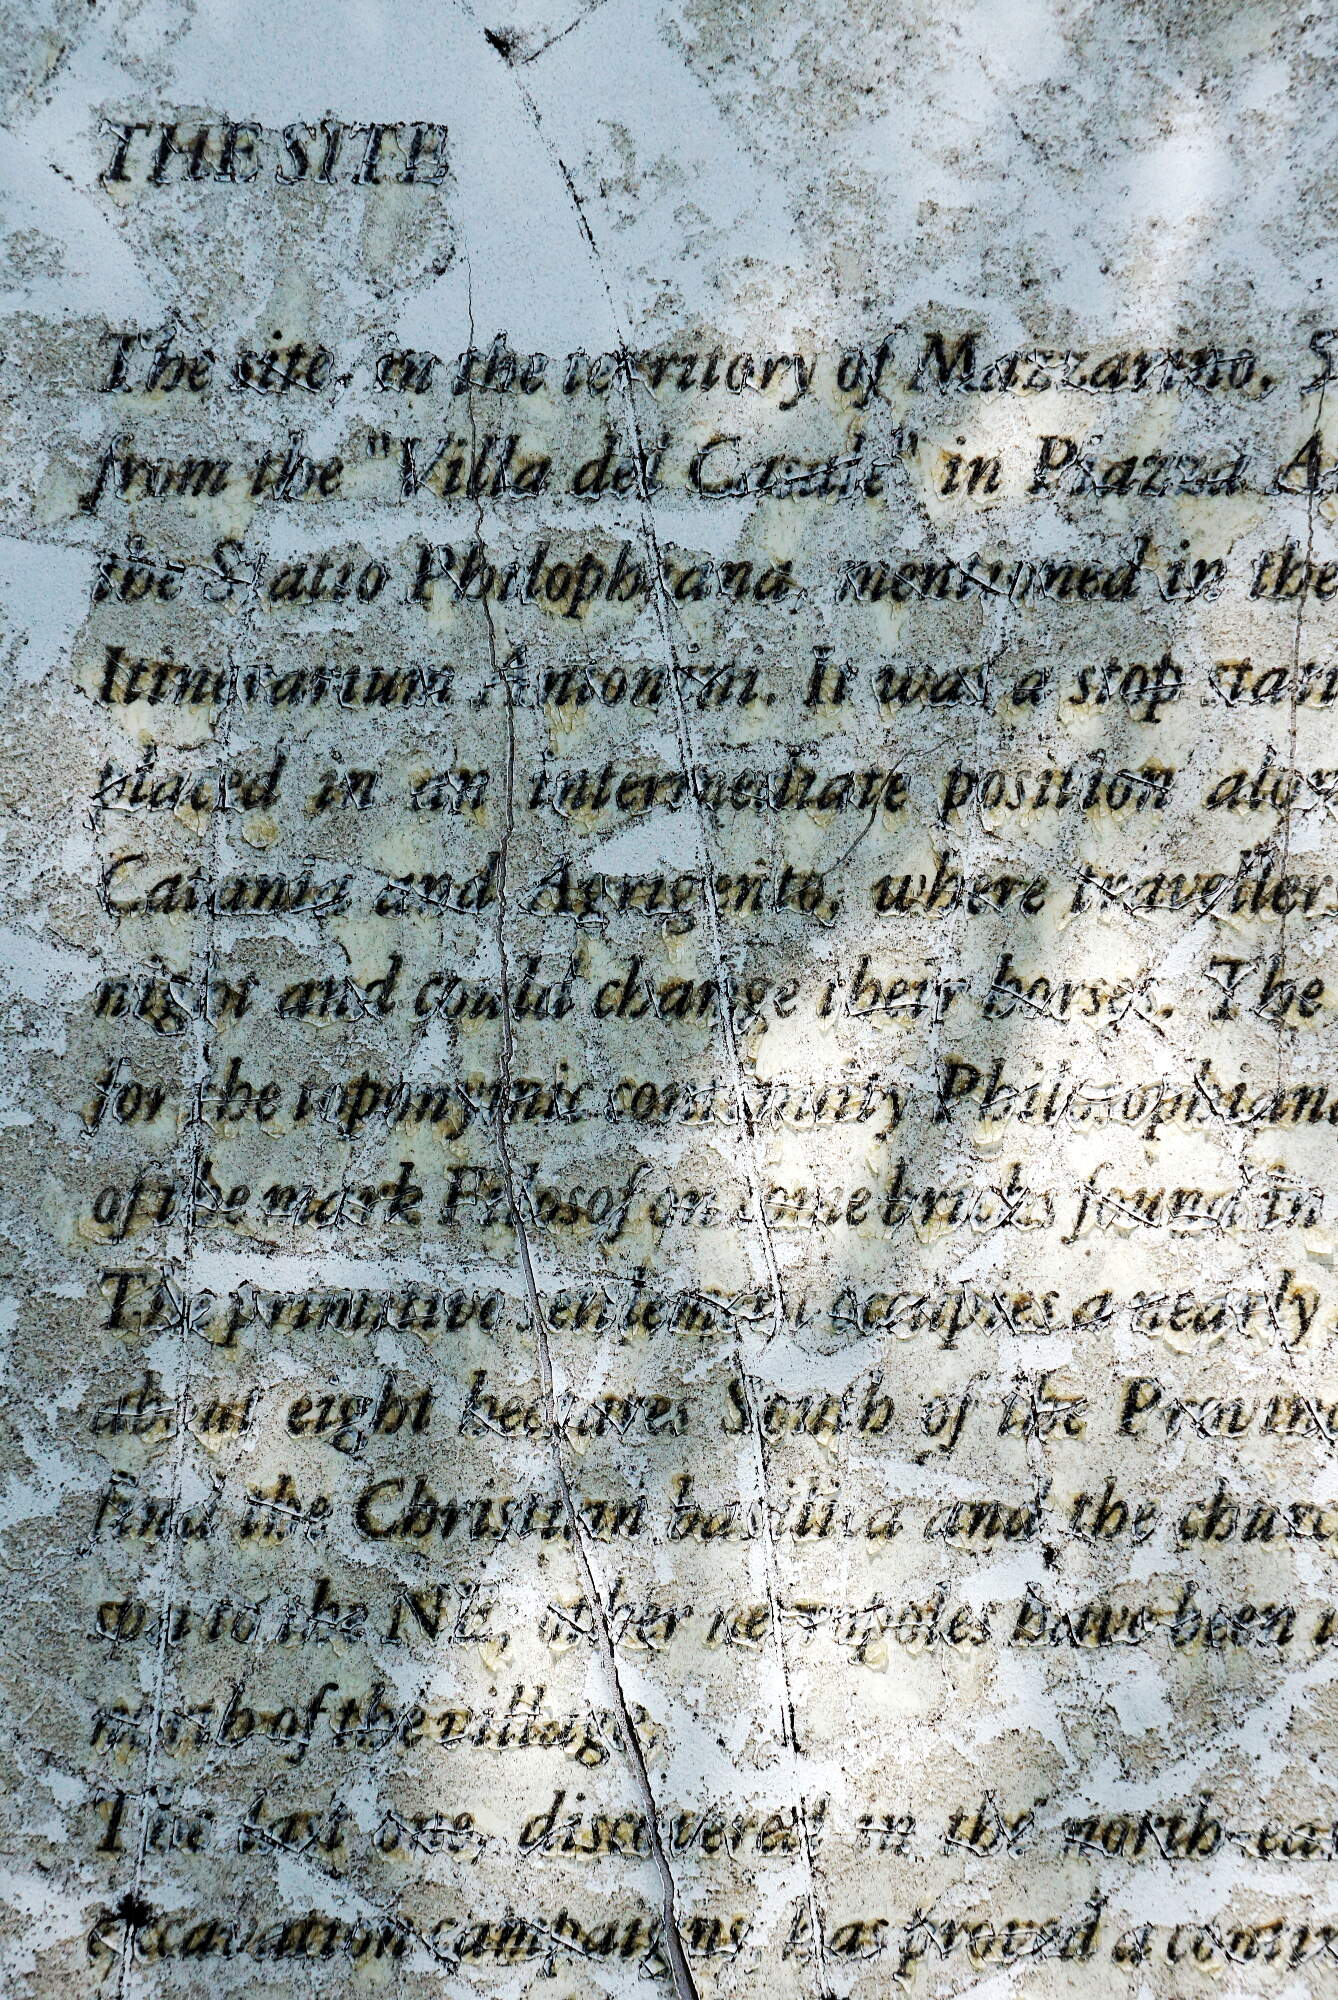 THE SITE
The site, in the territory of Mazzarino, S
from the "Villa del Casale" in Piazza A
the Statio Philophiana, mentioned in the
Itinerarium Antonini. It was a stop stati
placed in an intermediate position alon
Catania and Agrigento, where travellers
night and could change their horses. The
for the toponymic community Philosophiana
of the mark Filosofon some bricks found in
The primitive settlement occupies a nearly
about eight hectares South of the Provin
find the Christian basilica and the
to the NE, other necropoles have been
north of the village.
The last one, discovered in the north-ea
excavation campaigns, has proved a